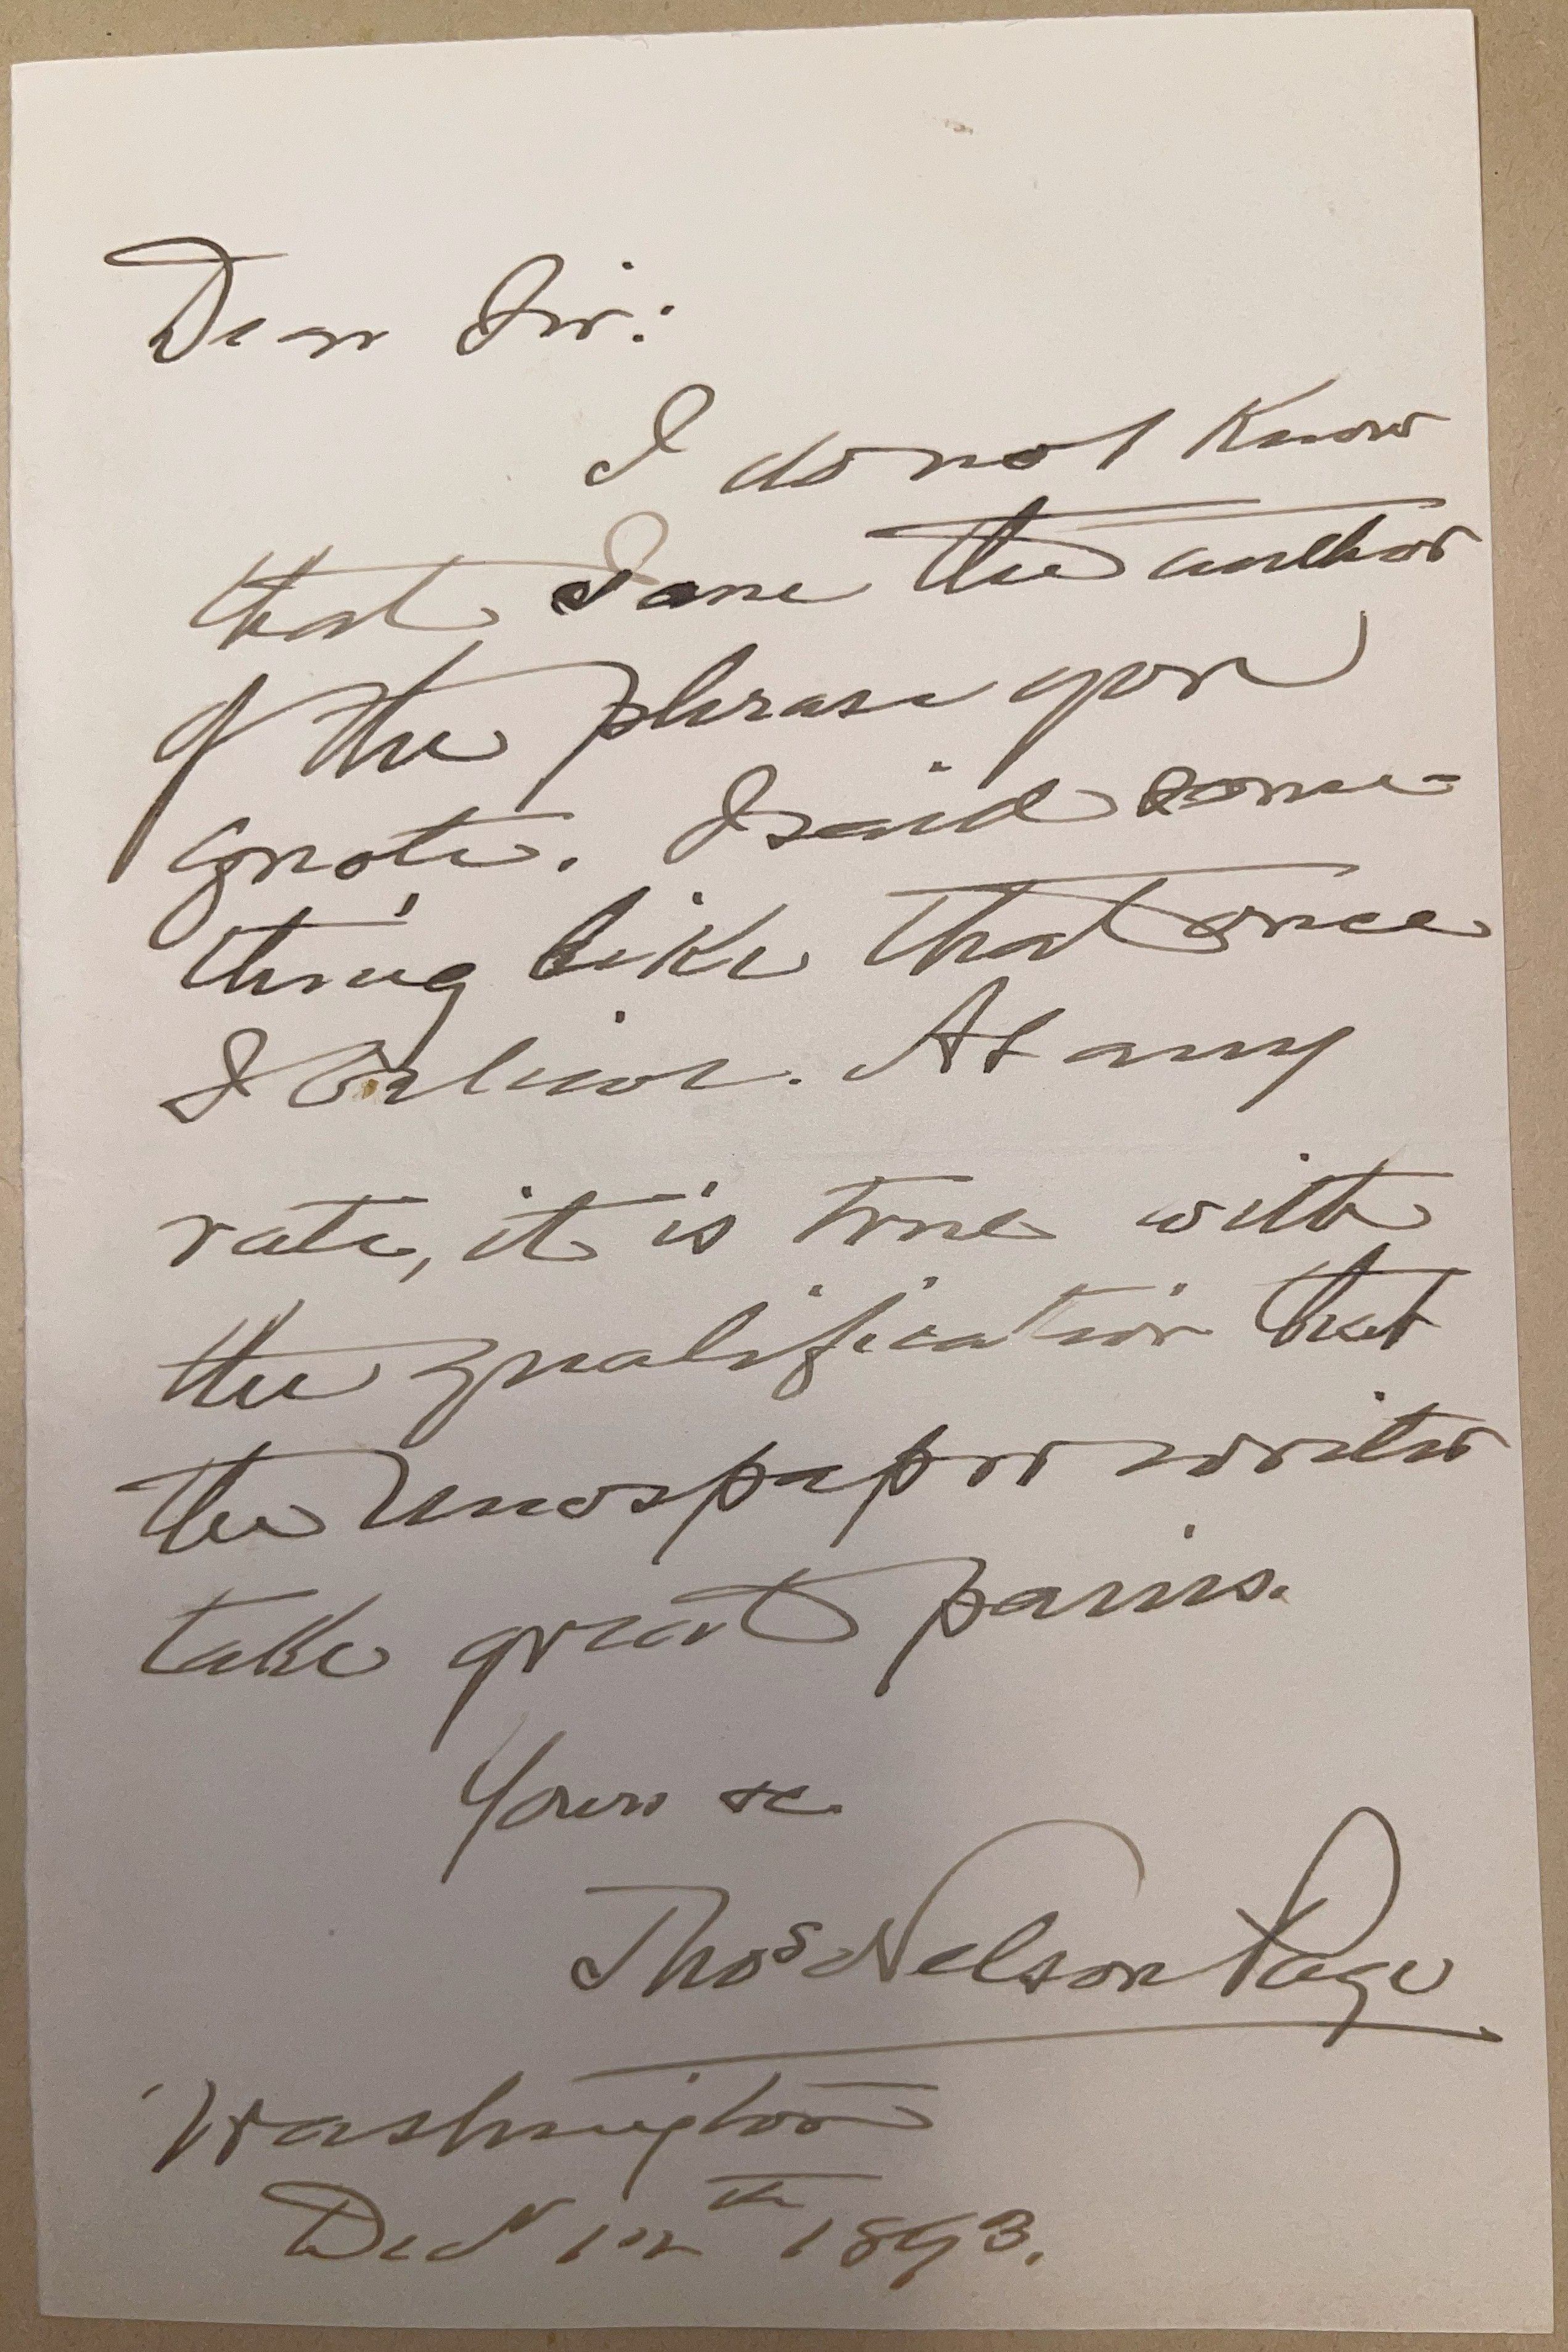 Dear Sir:
I do not know
that I am the author
of the phrase you
quote. I said some-
thing like that once
I believe. At any
rate, it is true with
the qualification that
the newspaper writer
take great pains.
Yours &c.
Thos Nelson Page
Washington
Dec 12th 1893.